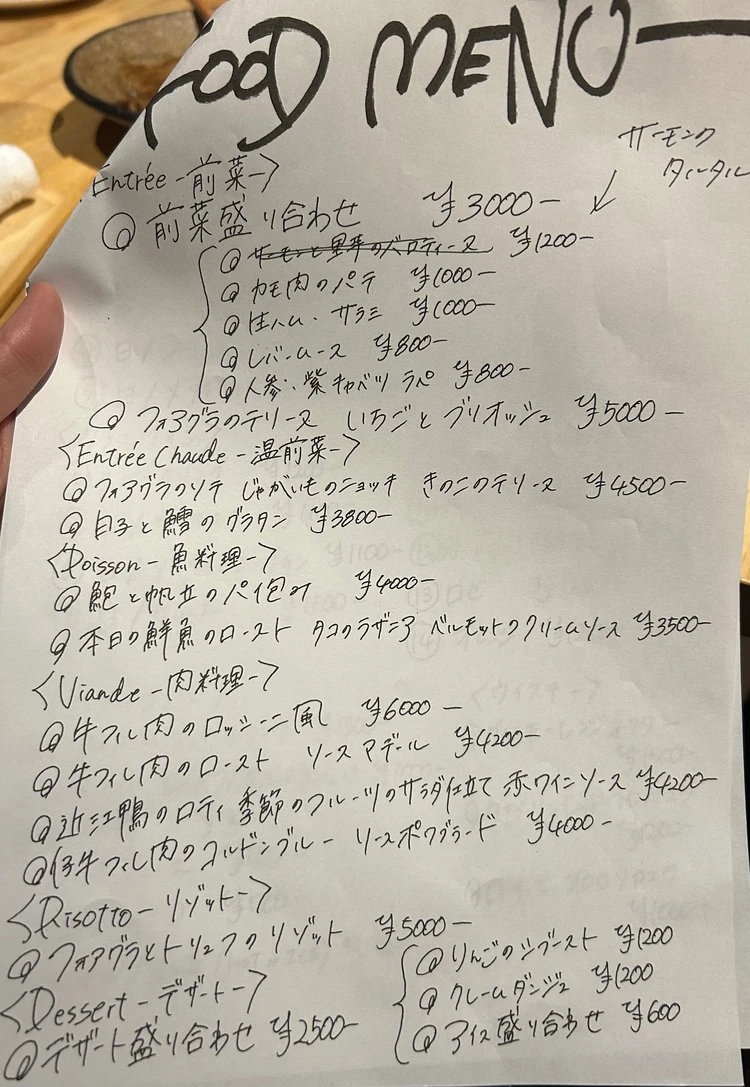 FOOD MENU
サーモンク
タルタル
<Entrée -前菜->
前菜盛り合わせ ¥3000-
サーモンと里芋のバロティーヌ ¥1200-
カモ肉のパテ ¥1000-
生ハム・サラミ ¥1000-
レバームース ¥800-
人参・紫キャベツ ラペ ¥800-
フォアグラのテリーヌ いちごとブリオッシュ ¥5000-
<Entrée Chaude -温前菜->
フォアグラのソテ じゃがいものニョッキ きのこのテリーヌ ¥4500-
白子と鱈のグラタン ¥3800-
<Poisson -魚料理->
鮑と帆立のパイ包み ¥4000-
本日の鮮魚のロースト タコのラザニア ベルモットのクリームソース ¥3500-
<Viande -肉料理->
牛フィレ肉のロッシーニ風 ¥6000-
牛フィレ肉のロースト ソースマデール ¥4200-
近江鴨のロティ 季節のフルーツのサラダ仕立て 赤ワインソース ¥4200-
仔牛フィレ肉のコルドンブルー ソースポワヴラード ¥4000-
<Risotto -リゾット->
フォアグラとトリュフのリゾット ¥5000-
<Dessert -デザート->
デザート盛り合わせ ¥2500-
りんごのシブースト ¥1200
クレームダンジュ ¥1200
アイス盛り合わせ ¥600